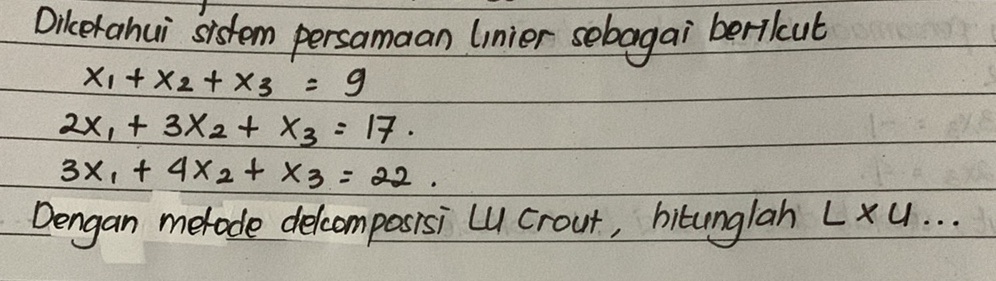 Diketahui sistem persamaan linier sebagai berikut
x₁ + x₂ + x₃ = 9
2x₁ + 3x₂ + x₃ = 17.
3x₁ + 4x₂ + x₃ = 22.
Dengan metode dekomposisi LU Crout, hitunglah L x U...